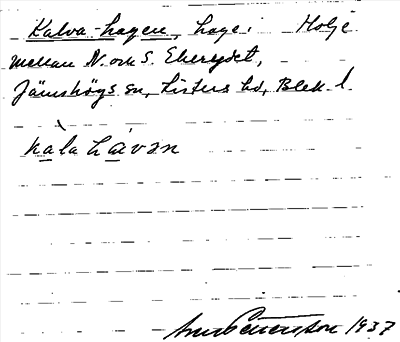 Kalva-hagen, hage i Holje
mellan N. och S. Eberydet,
Jämshögs sn, Listers hd, Blek. l.
kàla hávən
1937